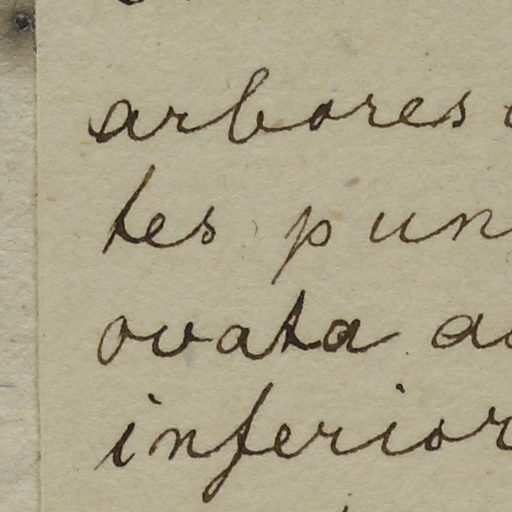 arbores
tes pun
ovata a
inferior